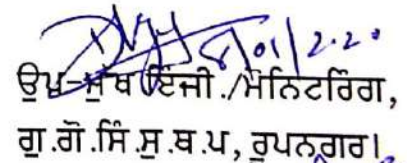 8/01/2.20
ਉਪ-ਮੁੱਖ ਇੰਜੀ./ਮੋਨਿਟਰਿੰਗ,
ਗੁ.ਗੋ.ਸਿੰ.ਸੁ.ਥ.ਪ, ਰੂਪਨਗਰ।